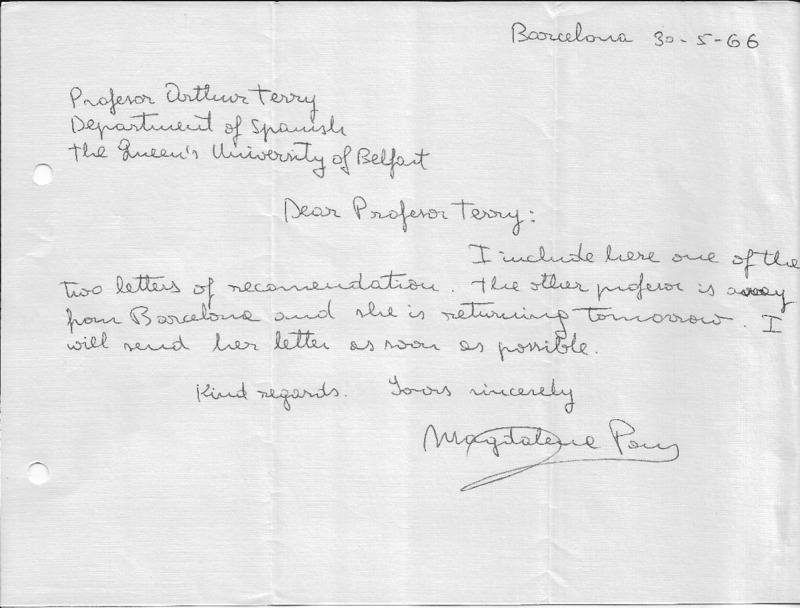 Barcelona 30-5-66
Profesor Arthur Terry
Department of Spanish
The Queen's University of Belfast
Dear Profesor Terry:
I include here one of the
two letters of recomendation. The other profesor is away
from Barcelona and she is returning tomorrow. I
will send her letter as soon as possible.
Kind regards. Yours sincerely
Magdalena Pons